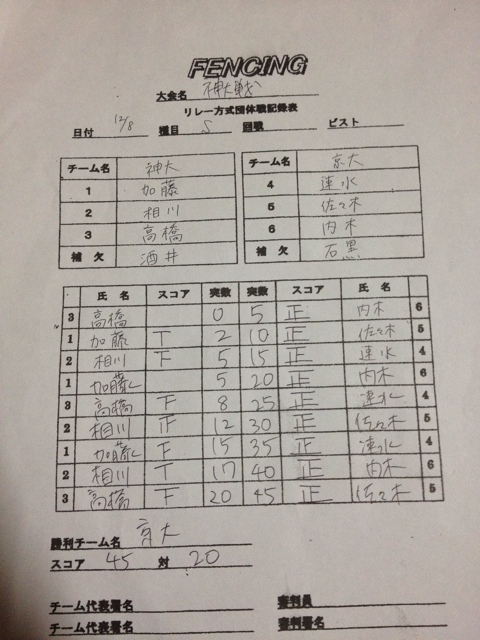 FENCING
大会名 神大戦
リレー方式団体戦記録表
日付 12/8 種目 S 回戦 ピスト
チーム名 神大 チーム名 京大
1 加藤 4 速水
2 相川 5 佐々木
3 高橋 6 内木
補欠 酒井 補欠 石黒
氏名 スコア 突数 突数 スコア 氏名
3 高橋 0 5 正 内木 6
1 加藤 T 2 10 正 佐々木 5
2 相川 F 5 15 正 速水 4
1 加藤 5 20 正 内木 6
3 高橋 F 8 25 正 速水 4
2 相川 正 12 30 正 佐々木 5
1 加藤 F 15 35 正 速水 4
2 相川 T 17 40 正 内木 6
3 高橋 F 20 45 正 佐々木 5
勝利チーム名 京大
スコア 45 対 20
チーム代表署名 審判員
チーム代表署名 審判署名